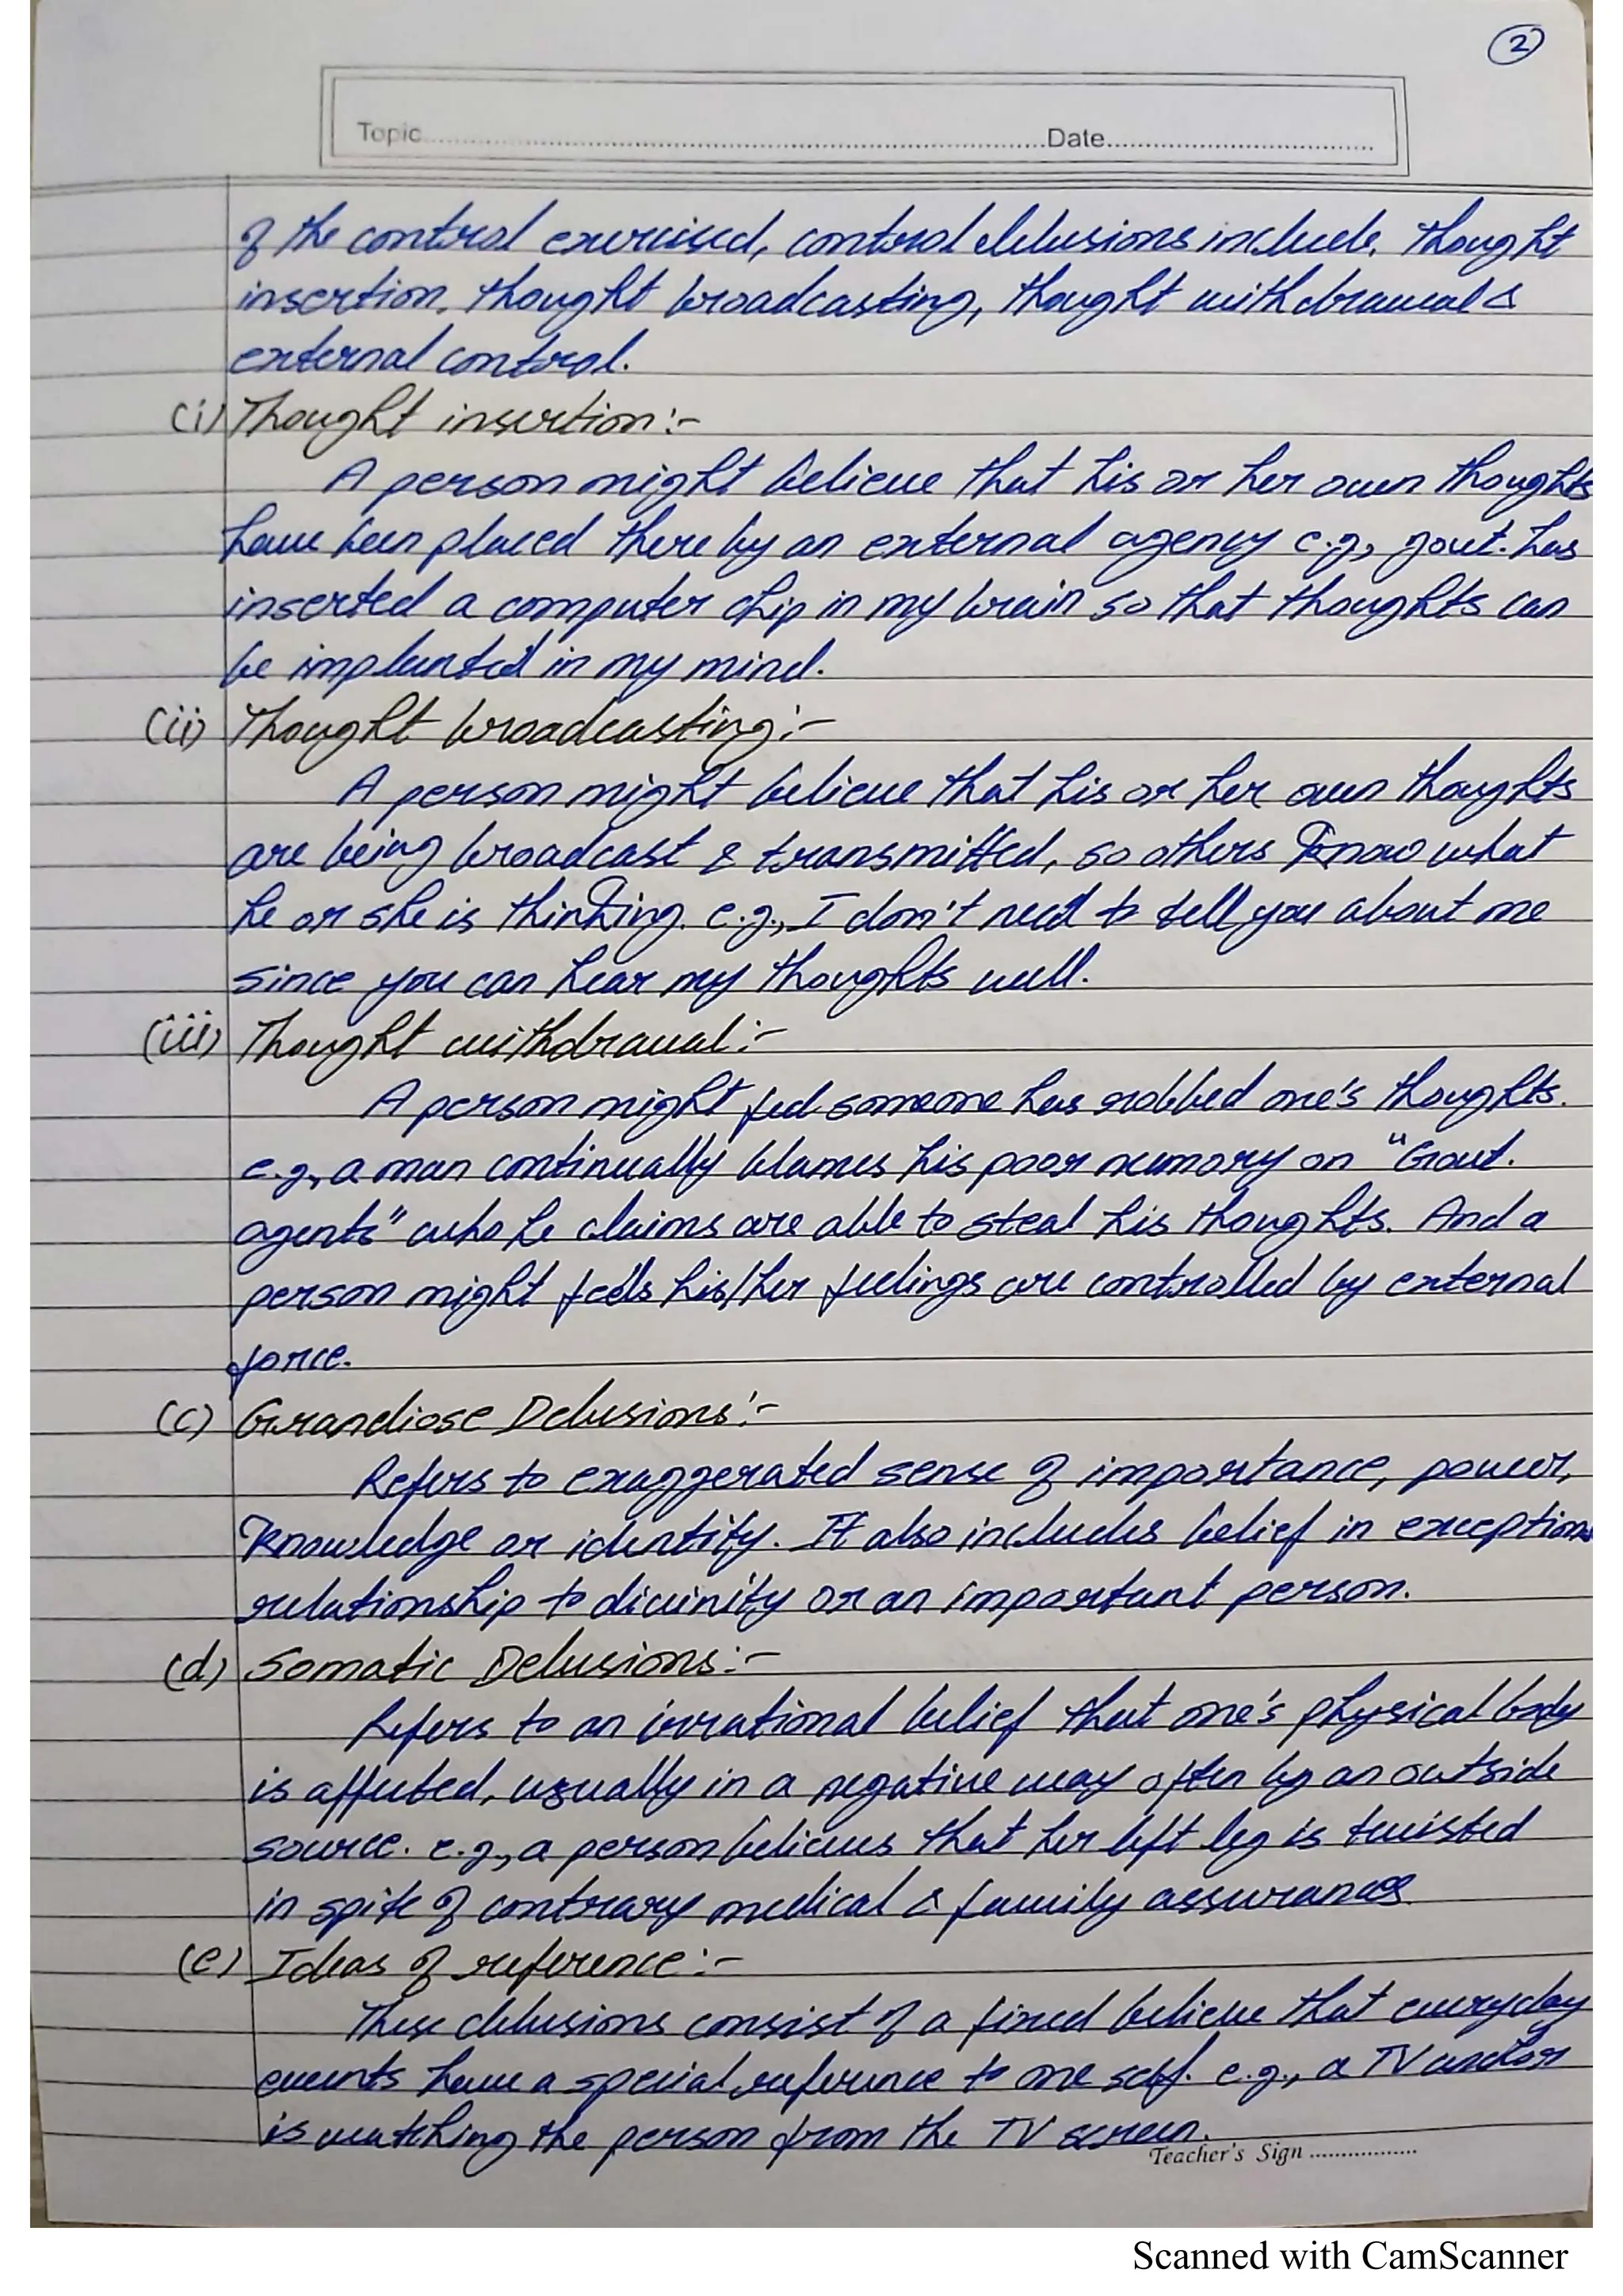 2
Topic..........Date..........
of the control exercised, control delusions include, thought
insertion, thought broadcasting, thought withdrawal &
external control.
(i) Thought insertion:-
A person might believe that his or her own thoughts
have been placed there by an external agency e.g., govt. has
inserted a computer chip in my brain so that thoughts can
be implanted in my mind.
(ii) Thought broadcasting:-
A person might believe that his or her own thoughts
are being broadcast & transmitted, so others know what
he or she is thinking. e.g., I don't need to tell you about me
since you can hear my thoughts well.
(iii) Thought withdrawal:-
A person might feel someone has robbed one's thoughts.
e.g., a man continually blames his poor memory on "Govt.
agents" who he claims are able to steal his thoughts. And a
person might feels his/her feelings are controlled by external
force.
(c) Grandiose Delusions:-
Refers to exaggerated sense of importance, power,
knowledge or identity. It also includes belief in exception
relationship to divinity or an important person.
(d) Somatic Delusions:-
Refers to an irrational belief that one's physical body
is affected, usually in a negative way often by an outside
source. e.g., a person believes that her left leg is twisted
in spite of contrary medical & family assurances
(e) Ideas of reference:-
These delusions consist of a fixed believe that everyday
events have a special reference to one self. e.g., a TV
is watching the person from the TV screen.
Teacher's Sign ..........
Scanned with CamScanner